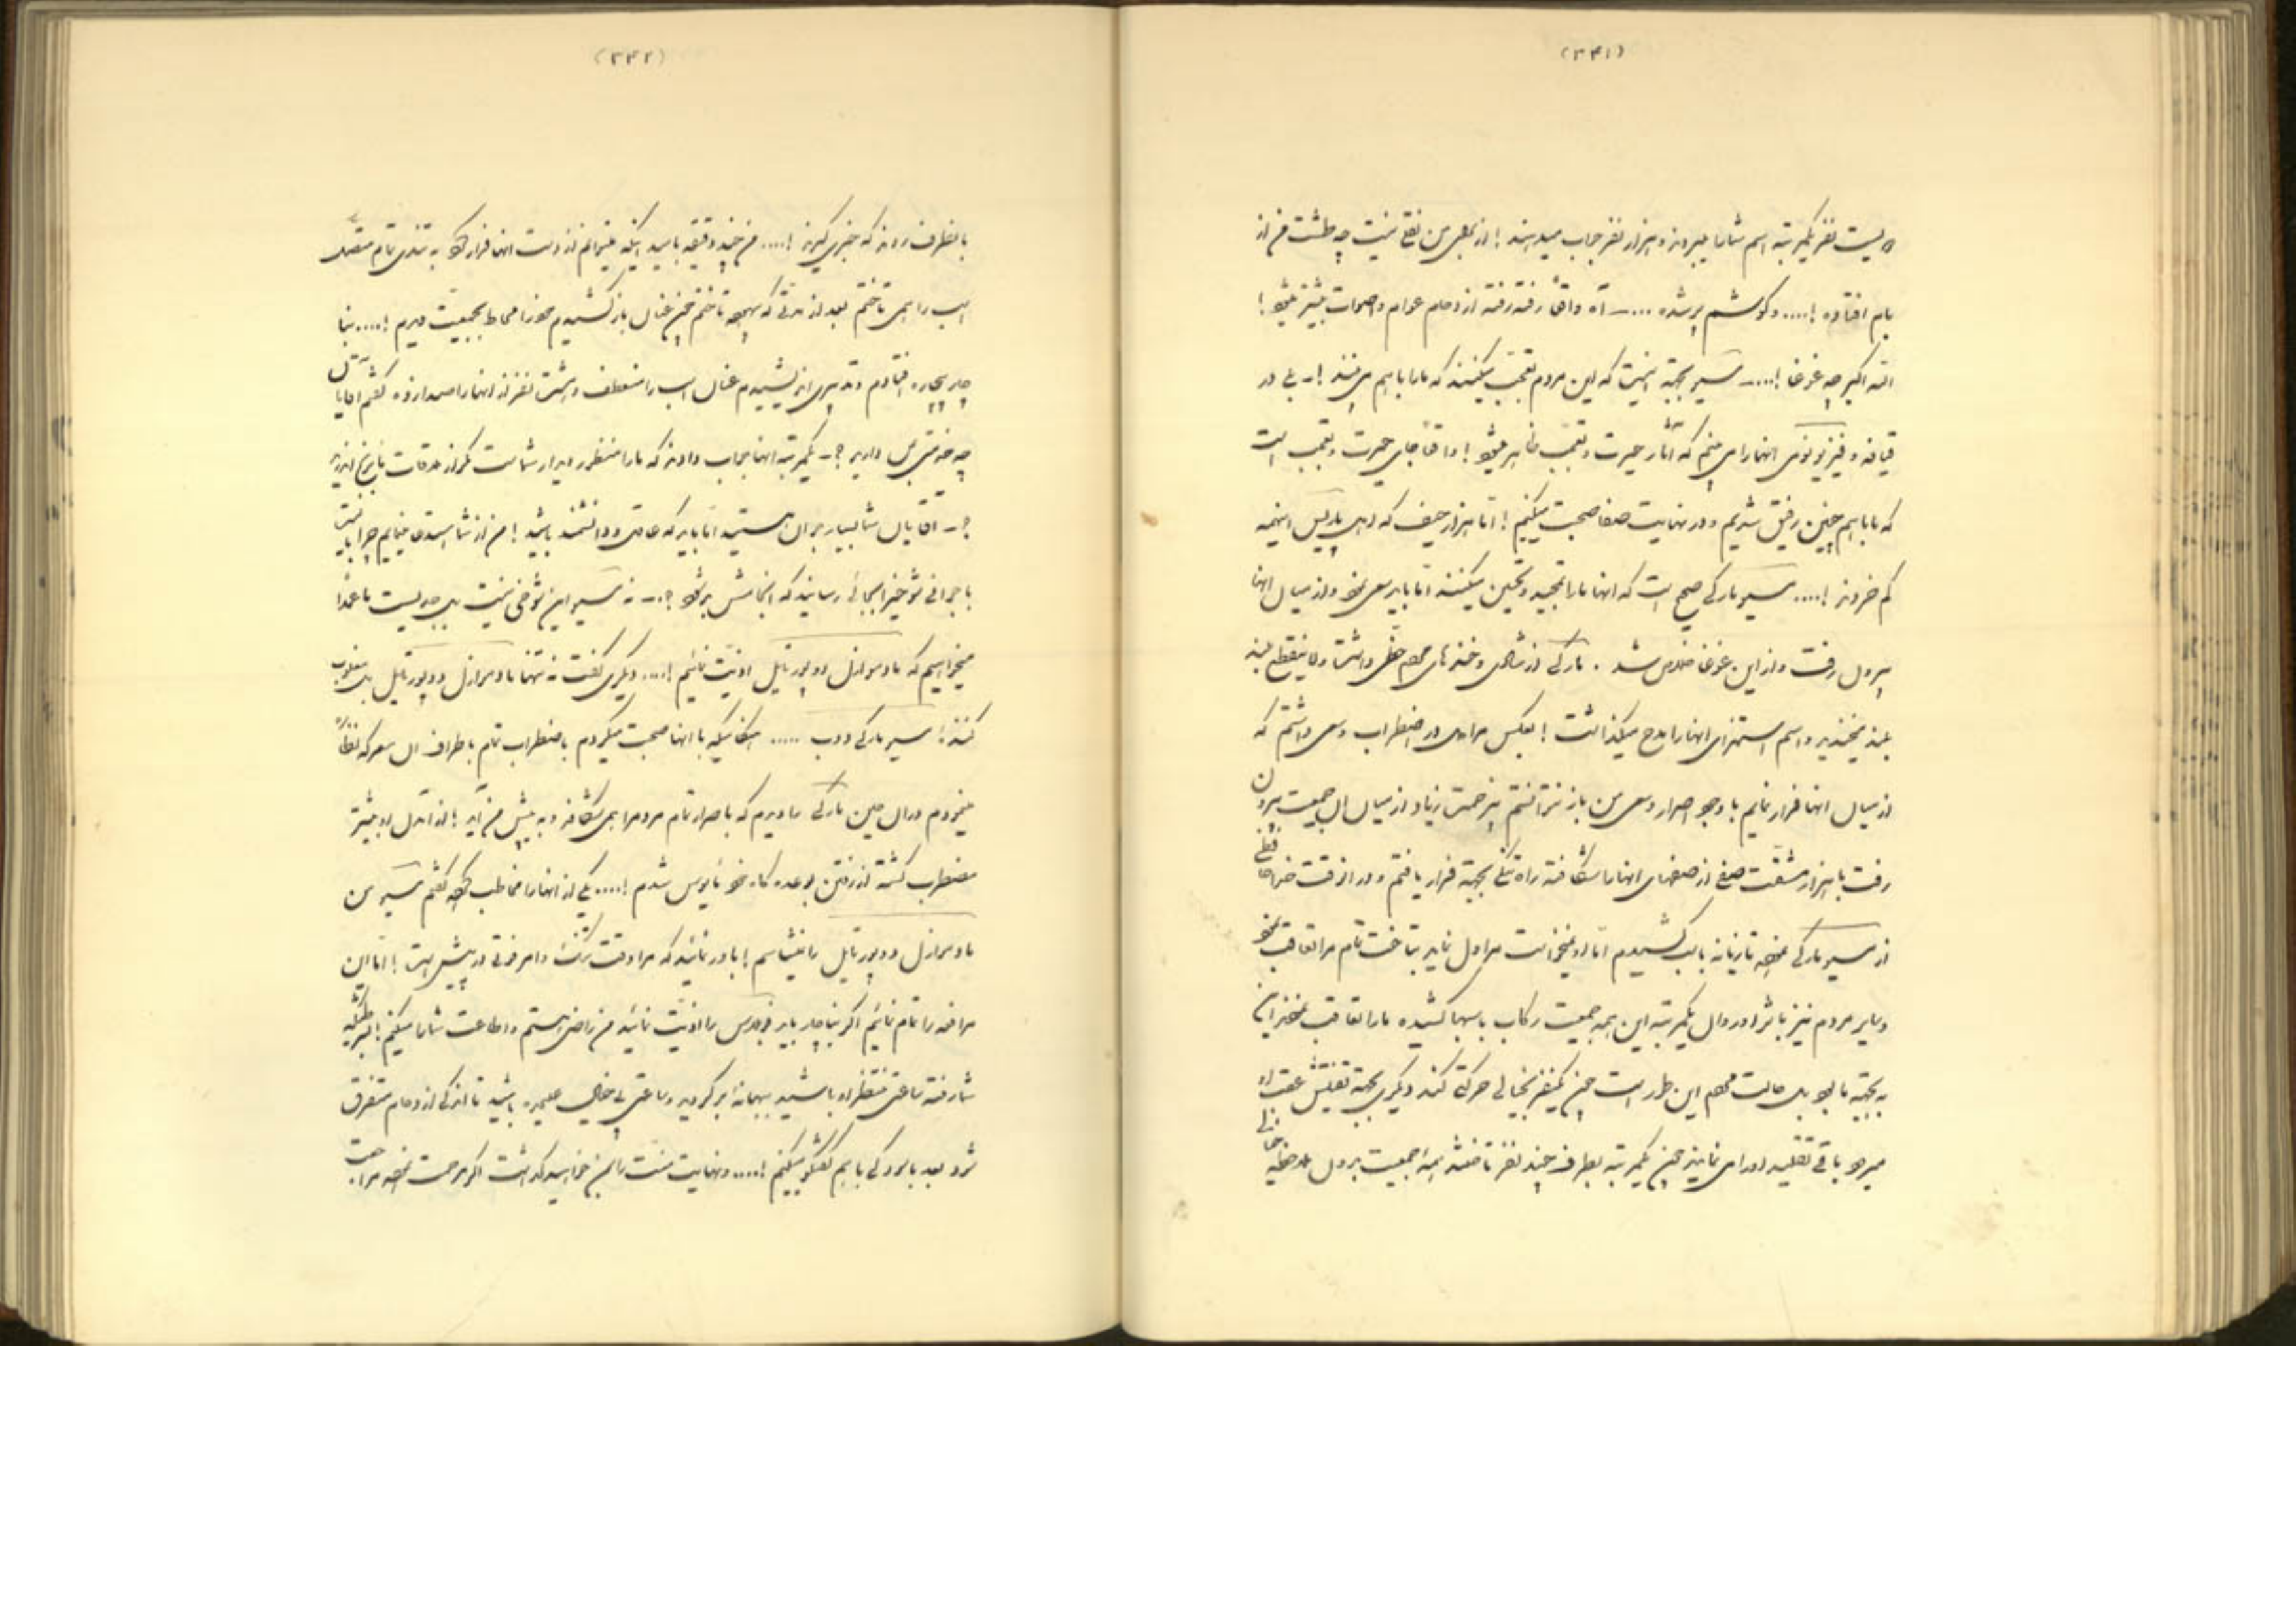 (۳۴۱)
بیست نفر یکمرتبه اسم شما را میبرند و هزار نفر جواب میدهند ! از بغی من نفع نیست چه طشت من از
بام افتاده !.... و گوشم پر شده ....ـ آه واقعاً رفته رفته ازدحام عوام و اصوات بیشتر میشود !
الله اکبر چه غوغا !....ـ مسیو بجهة اینست که این مردم تعجب میکنند که ما را با هم می بینند !ـ بلی در
قیافه و فیزیونومی انها را می بینم که آثار حیرت و تعجب ظاهر میشود ! واقعاً جای حیرت و تعجب است
که ما با هم چنین رفیق شدیم و در نهایت صفا صحبت میکنیم ! اما هزار حیف که اهل پاریس اینهمه
کم خردند !.... مسیو مارکی صحیح است که انها ما را تمجید و تحسین میکنند اما باید سعی نمود و از میان انها
بیرون رفت و از این غوغا خلاص شد . مارکی از شادی و خنده های مردم حظی داشت و لاینقطع بلند
بلند میخندید و اسم استهزای انها را مدح میگذاشت ! بعکس مرا دل در اضطراب و سعی داشتم که
از میان انها فرار نمایم با وجود اصرار و سعی من باز نتوانستم بی زحمت زیاد از میان ان جمعیت بیرون
رفت با هزار مشقت صفی از صفهای انها را شکافته راه تنگی بجهة فرار یافتم و در انوقت خداحافظی
از مسیو مارکی نموده تازیانه باسب کشیدم اما او نمیخواست مرا ول نماید بتاخت تمام مرا تعاقب نمود
و سایر مردم نیز باثر او روان یکمرتبه این همه جمعیت رکاب باسبها کشیده ما را تعاقب نمودند این
بی جهة ما بود بلی حالت مردم این طور است چون یکنفر بخیالی حرکتی کند دیگری بجهة تفتیش عقب او
میرود باقی تقلید او را می نمایند چون یکمرتبه بطرف چند نفر تاختند همهٔ جمعیت بدون ملاحظه
(۳۴۲)
بانطرف روند که خبری گیرند !.... من چند دقیقه بامید اینکه میتوانم از دست انها فرار کرد به تندی تمام متصل
اسب را همی تاختم بعد از مدتی که بیهوده تاختم چون عنان باز کشیدم خود را محاط بجمعیت دیدم !.... بنا
چار بچاره افتادم و تدبیری اندیشیدم عنان اسب را منعطف و هشت نفر از انها را صدا زده گفتم آقایان
چه خدمتی بمن دارید ؟ـ یکمرتبه انها جواب دادند که ما را منظور دیدار شماست
؟ـ آقایان شما بسیار جوان هستید اما باید که عاقل و دانشمند باشید ! من از شما استدعا مینمایم چرا بایست
با جوانی شوخی را بجائی رسانید که انجامش بد شود ؟ ـ نه مسیو این شوخی نیست بلی جدیست ما عمداً
میخواهیم که مادموازل دوپورتایل اذیت نمائیم !.... دیگری گفت نه تنها مادموازل دوپورتایل بلی
کنند ! مسیو مارکی دوب ..... هنگامیکه با انها صحبت میکردم باضطراب تمام باطراف ان معرکه نظاره
مینمودم در ان حین مارکی را دیدم که باصرار تمام مردم را همی شکافد و به پیش من آید ! از اول او بیشتر
مضطرب گشته از رفتن بوعده گاه خود مأیوس شدم !.... یکی از انها را مخاطب نموده گفتم مسیو من
مادموازل دوپورتایل را میشناسم ! باور نمائید که مرا وقت تنگ و امر فوتی در پیش است ! اما این
مرافعه را تمام نمائیم اگر بناچار باید فوبلاس را اذیت نمائید من راضی هستم و اطاعت شما را میکنم !
شما رفته ساعتی منتظر او باشید ببهانه ای برگردید و ساعتی بی خیال باشید تا اندکی ازدحام متفرق
شود بعد بامردکی با هم گفتگو میکنیم !.... و نهایت منت را بمن خواهید گذاشت اگر مرحمت نموده مرا